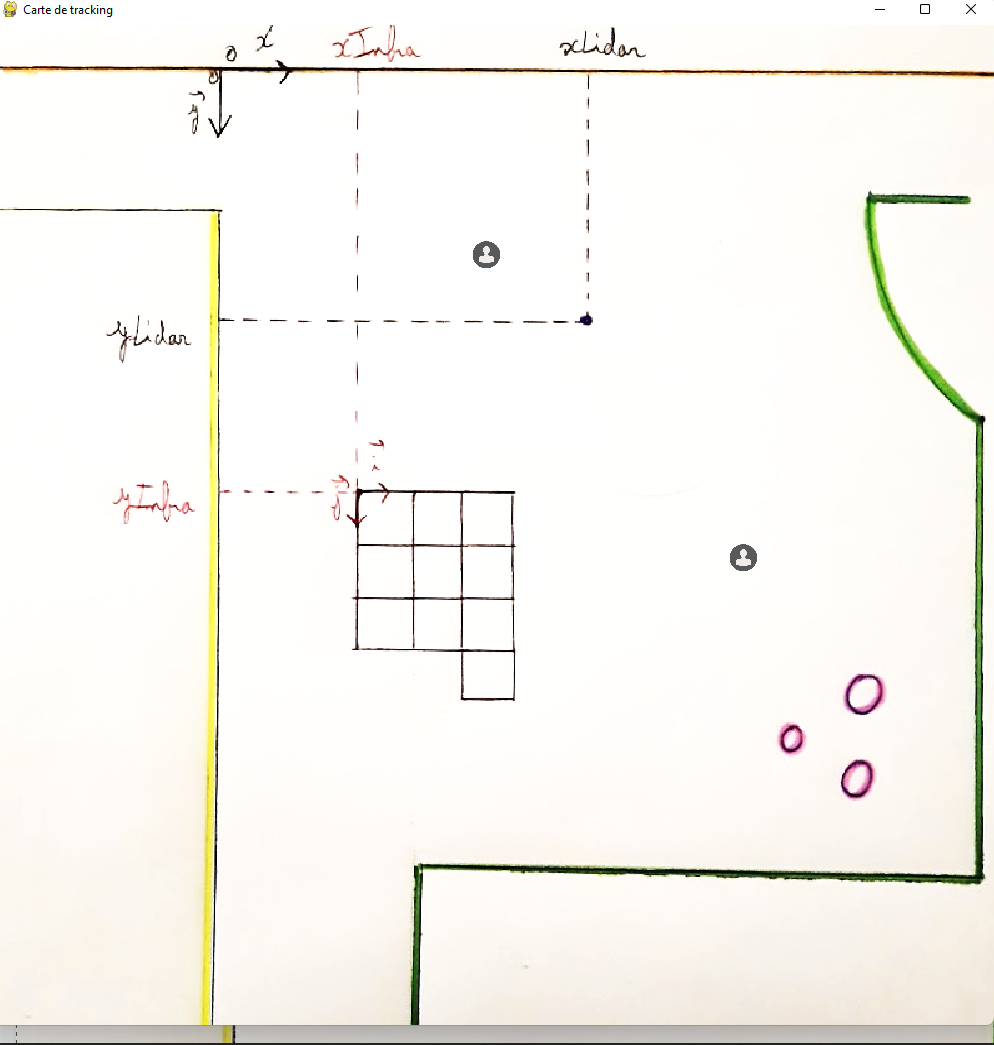 Carte de tracking
o x xInfra xLidar
o
y
yLidar
i
yInfra j